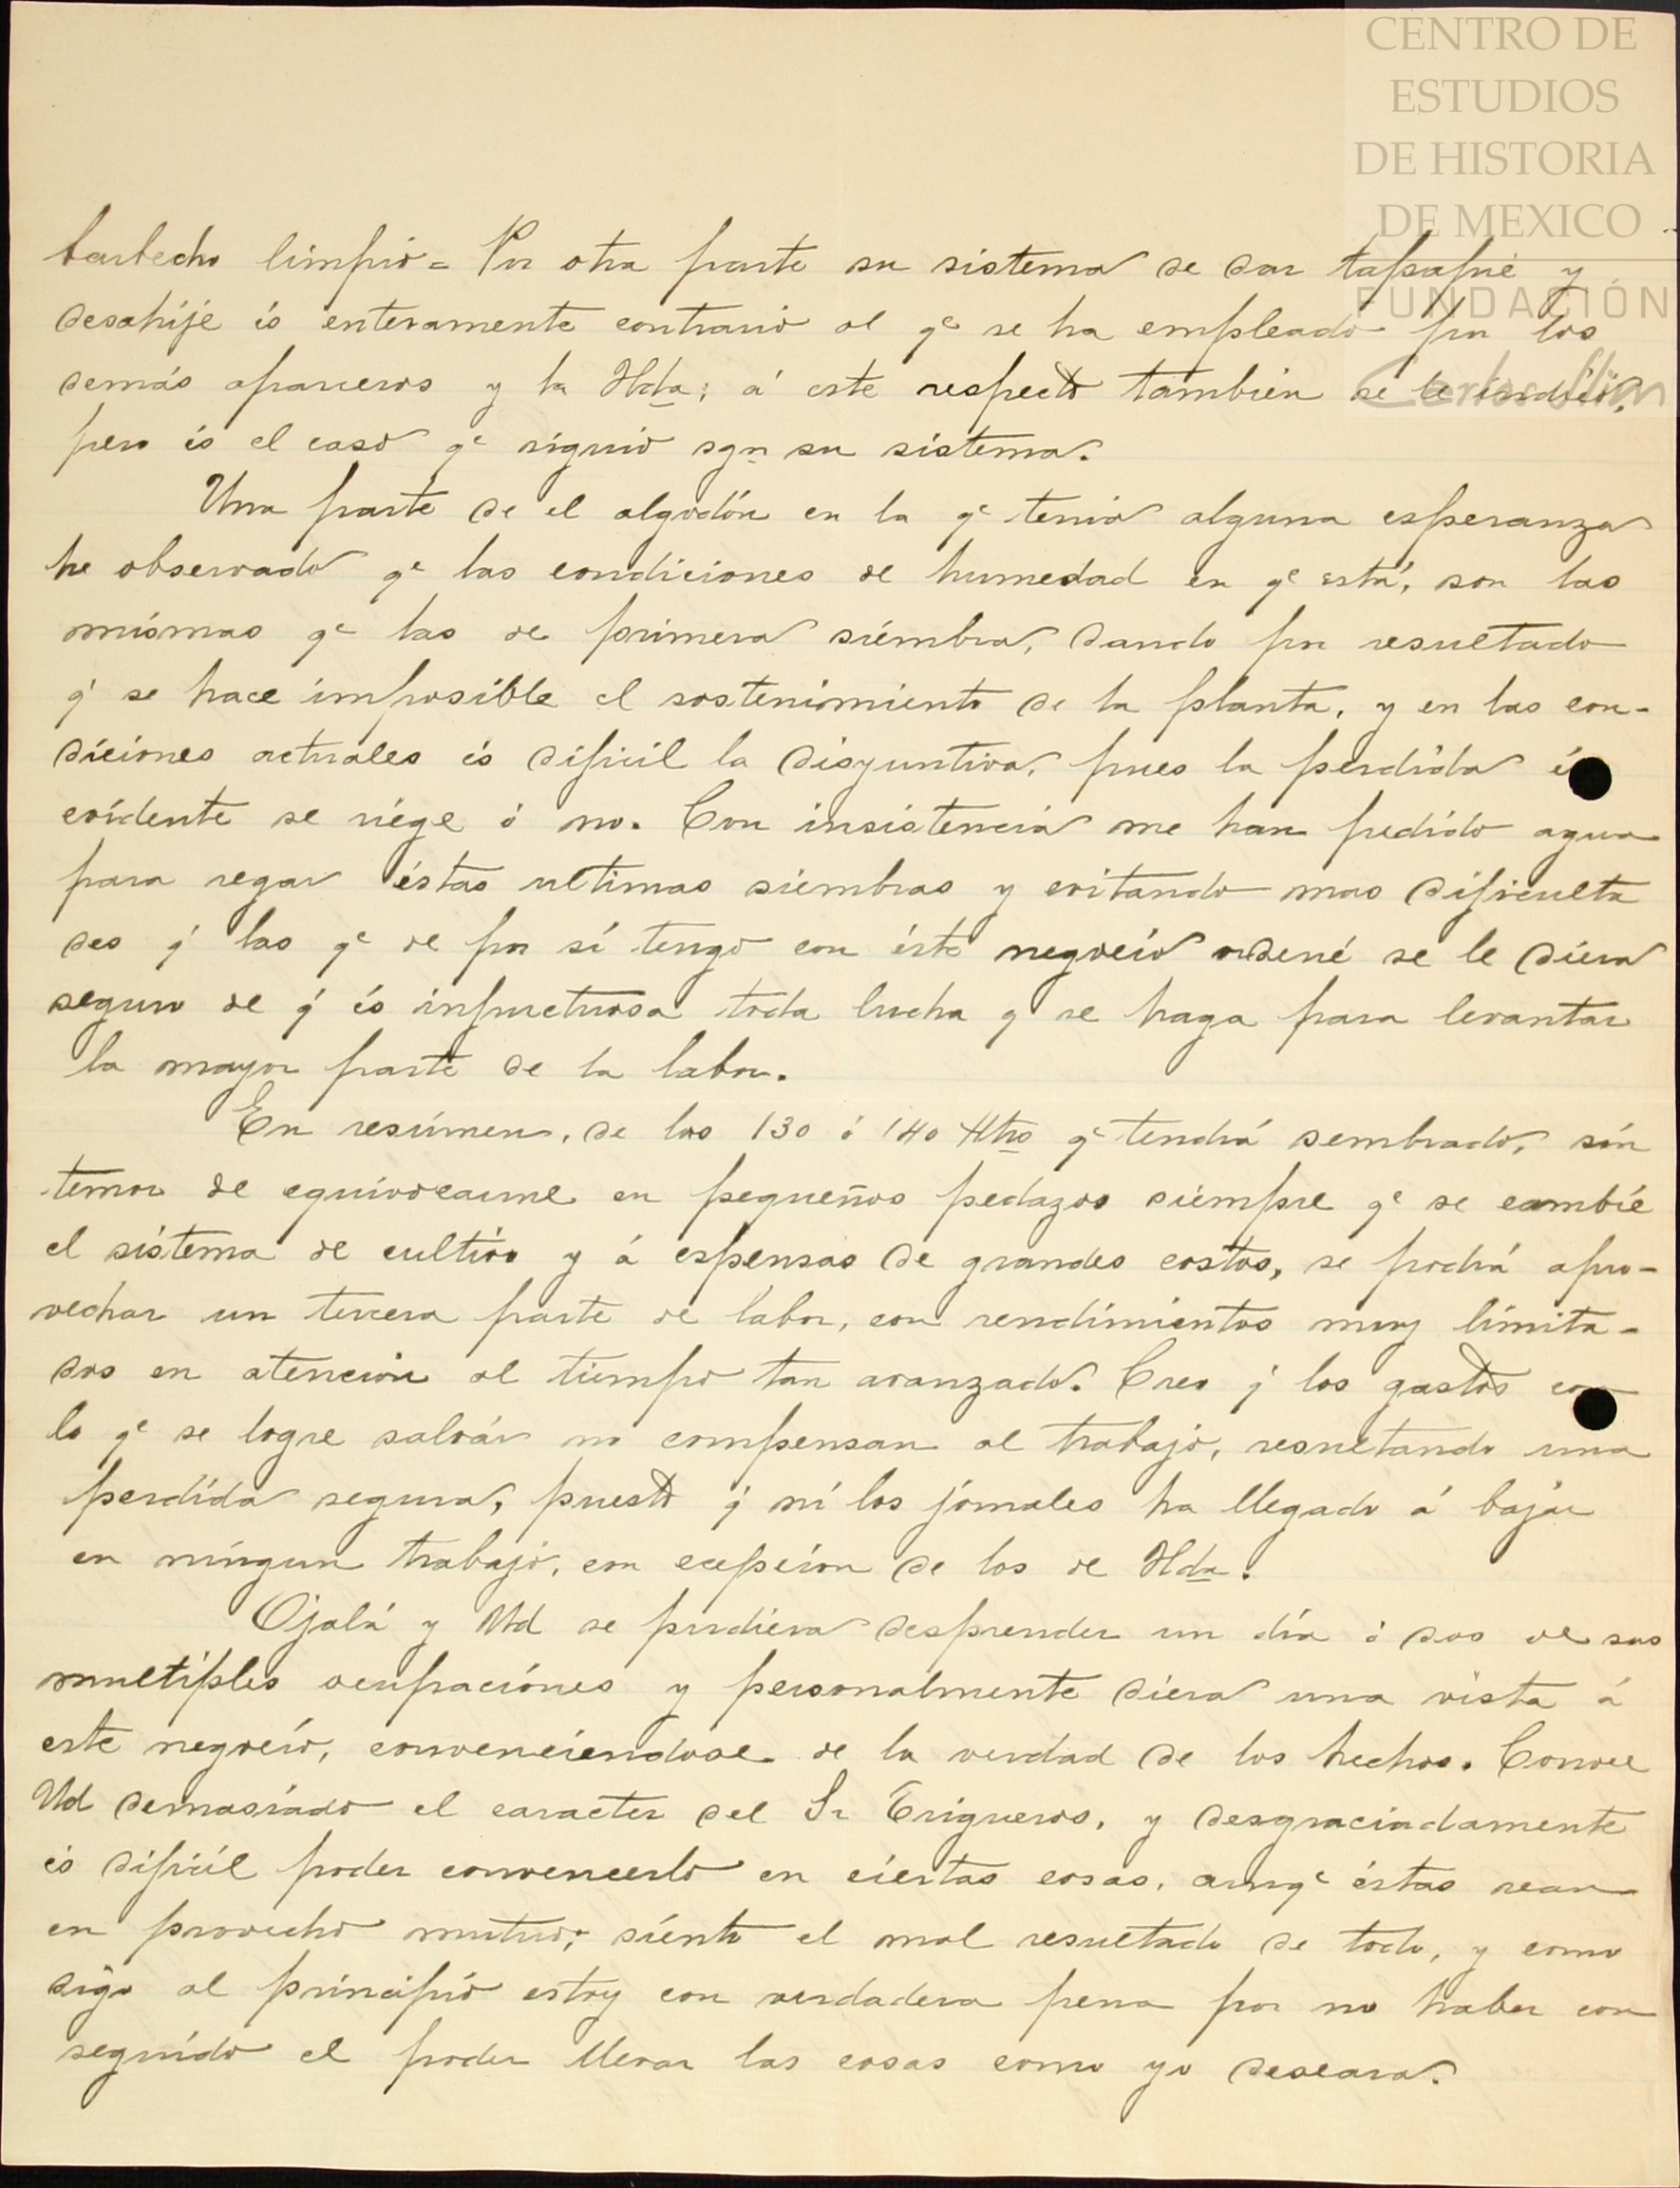 CENTRO DE
ESTUDIOS
DE HISTORIA
DE MEXICO
FUNDACIÓN
Carlos Slim
barbecho limpio = Por otra parte su sistema de dar tapapié y
desahije és enteramente contrario al qe se ha empleado por los
demás aparceros y la Hda; á este respecto tambien se le indicó,
pero és el caso qe siguió sgn su sistema.
Una parte de el algodón en la qe tenia alguna esperanza
he observado qe las condiciones de humedad en qe está, son las
mismas qe las de primera siembra, dando por resultado
q' se hace imposible el sostenimiento de la planta, y en las con-
diciones actuales és dificil la disyuntiva, pues la perdida és
evidente se riége ó no. Con insistencia me han pedido agua
para regar éstas ultimas siembras y evitando mas dificulta
des q' las qe de por sí tengo con éste negocio ordené se le diera
seguro de q' és infructuosa toda lucha q se haga para levantar
la mayor parte de la labor.
En resúmen, de las 130 ó 140 Htrs qe tendrá sembrado, sin
temor de equivocarme en pequeños pedazos siempre qe se cambie
el sistema de cultivo y á espensas de grandes costos, se podrá apro-
vechar un tercera parte de labor, con rendimientos muy limita-
dos en atención al tiempo tan avanzado. Creo q' los gastos con
lo qe se logre salvár no compensan al trabajo, resultando una
perdida segura, puesto q' ni los jornales ha llegado á bajar
en ningun trabajo, con ecepsion de los de Hda.
Ojalá y Ud se pudiera desprender un día ó dos de sus
multiples ocupaciónes y personalmente diera una vista á
este negocio, convenciendose de la verdad de los hechos. Conoce
Ud demasiado el caracter del Sr Trigueros, y desgraciadamente
és dificil poder convencerlo en ciertas cosas, aunqe éstas sean
en provecho mutuo; siento el mal resultado de todo, y como
digo al principio estoy con verdadera pena por no haber con
seguido el poder llevar las cosas como yo deseara.